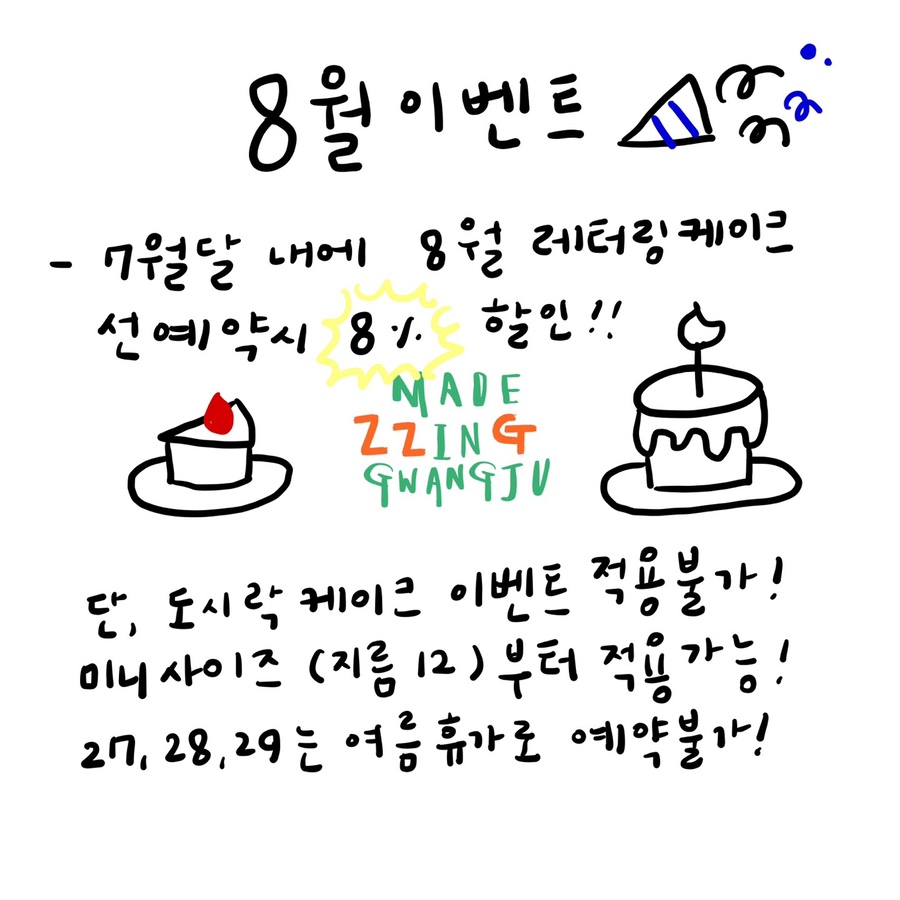 8월 이벤트
- 7월달 내에 8월 레터링케이크
선예약시 8% 할인!!
MADE
ZZING
GWANGJU
단, 도시락케이크 이벤트 적용불가!
미니사이즈 (지름 12) 부터 적용가능!
27, 28, 29는 여름휴가로 예약불가!